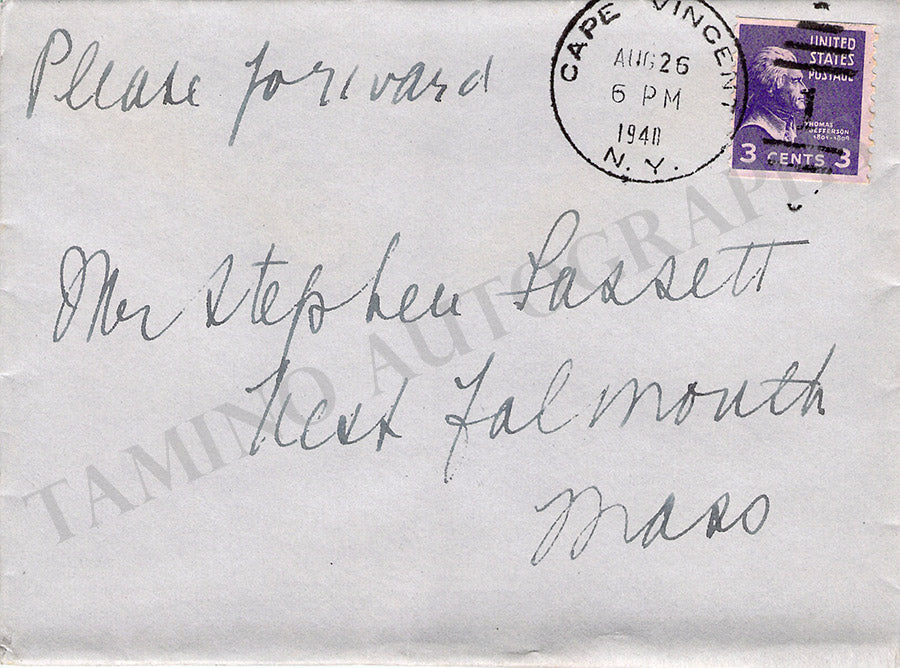 Please forward
CAPE VINCENT
AUG 26
6 PM
1940
N.Y.
UNITED
STATES
POSTAGE
THOMAS
JEFFERSON
1801-1809
3 CENTS 3
Mr Stephen Fassett
West Falmouth
Mass
TAMINO AUTOGRAPHS